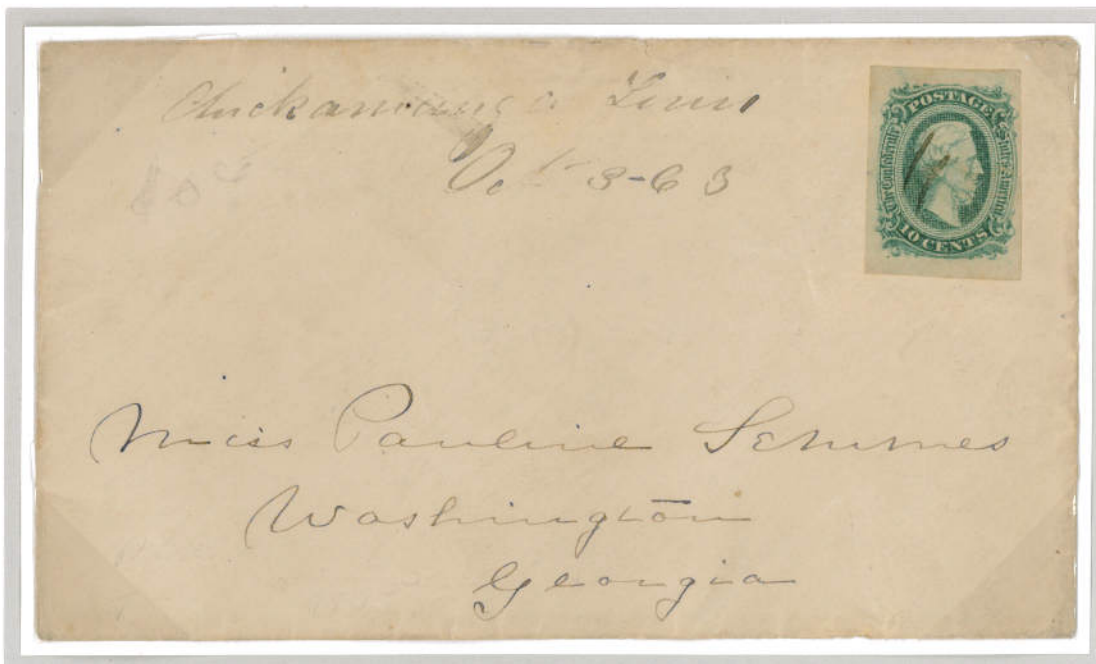 Chickamauga Tenn
Oct 3-63
POSTAGE
The Confederate States of America
10 CENTS
Miss Pauline Semmes
Washington
Georgia